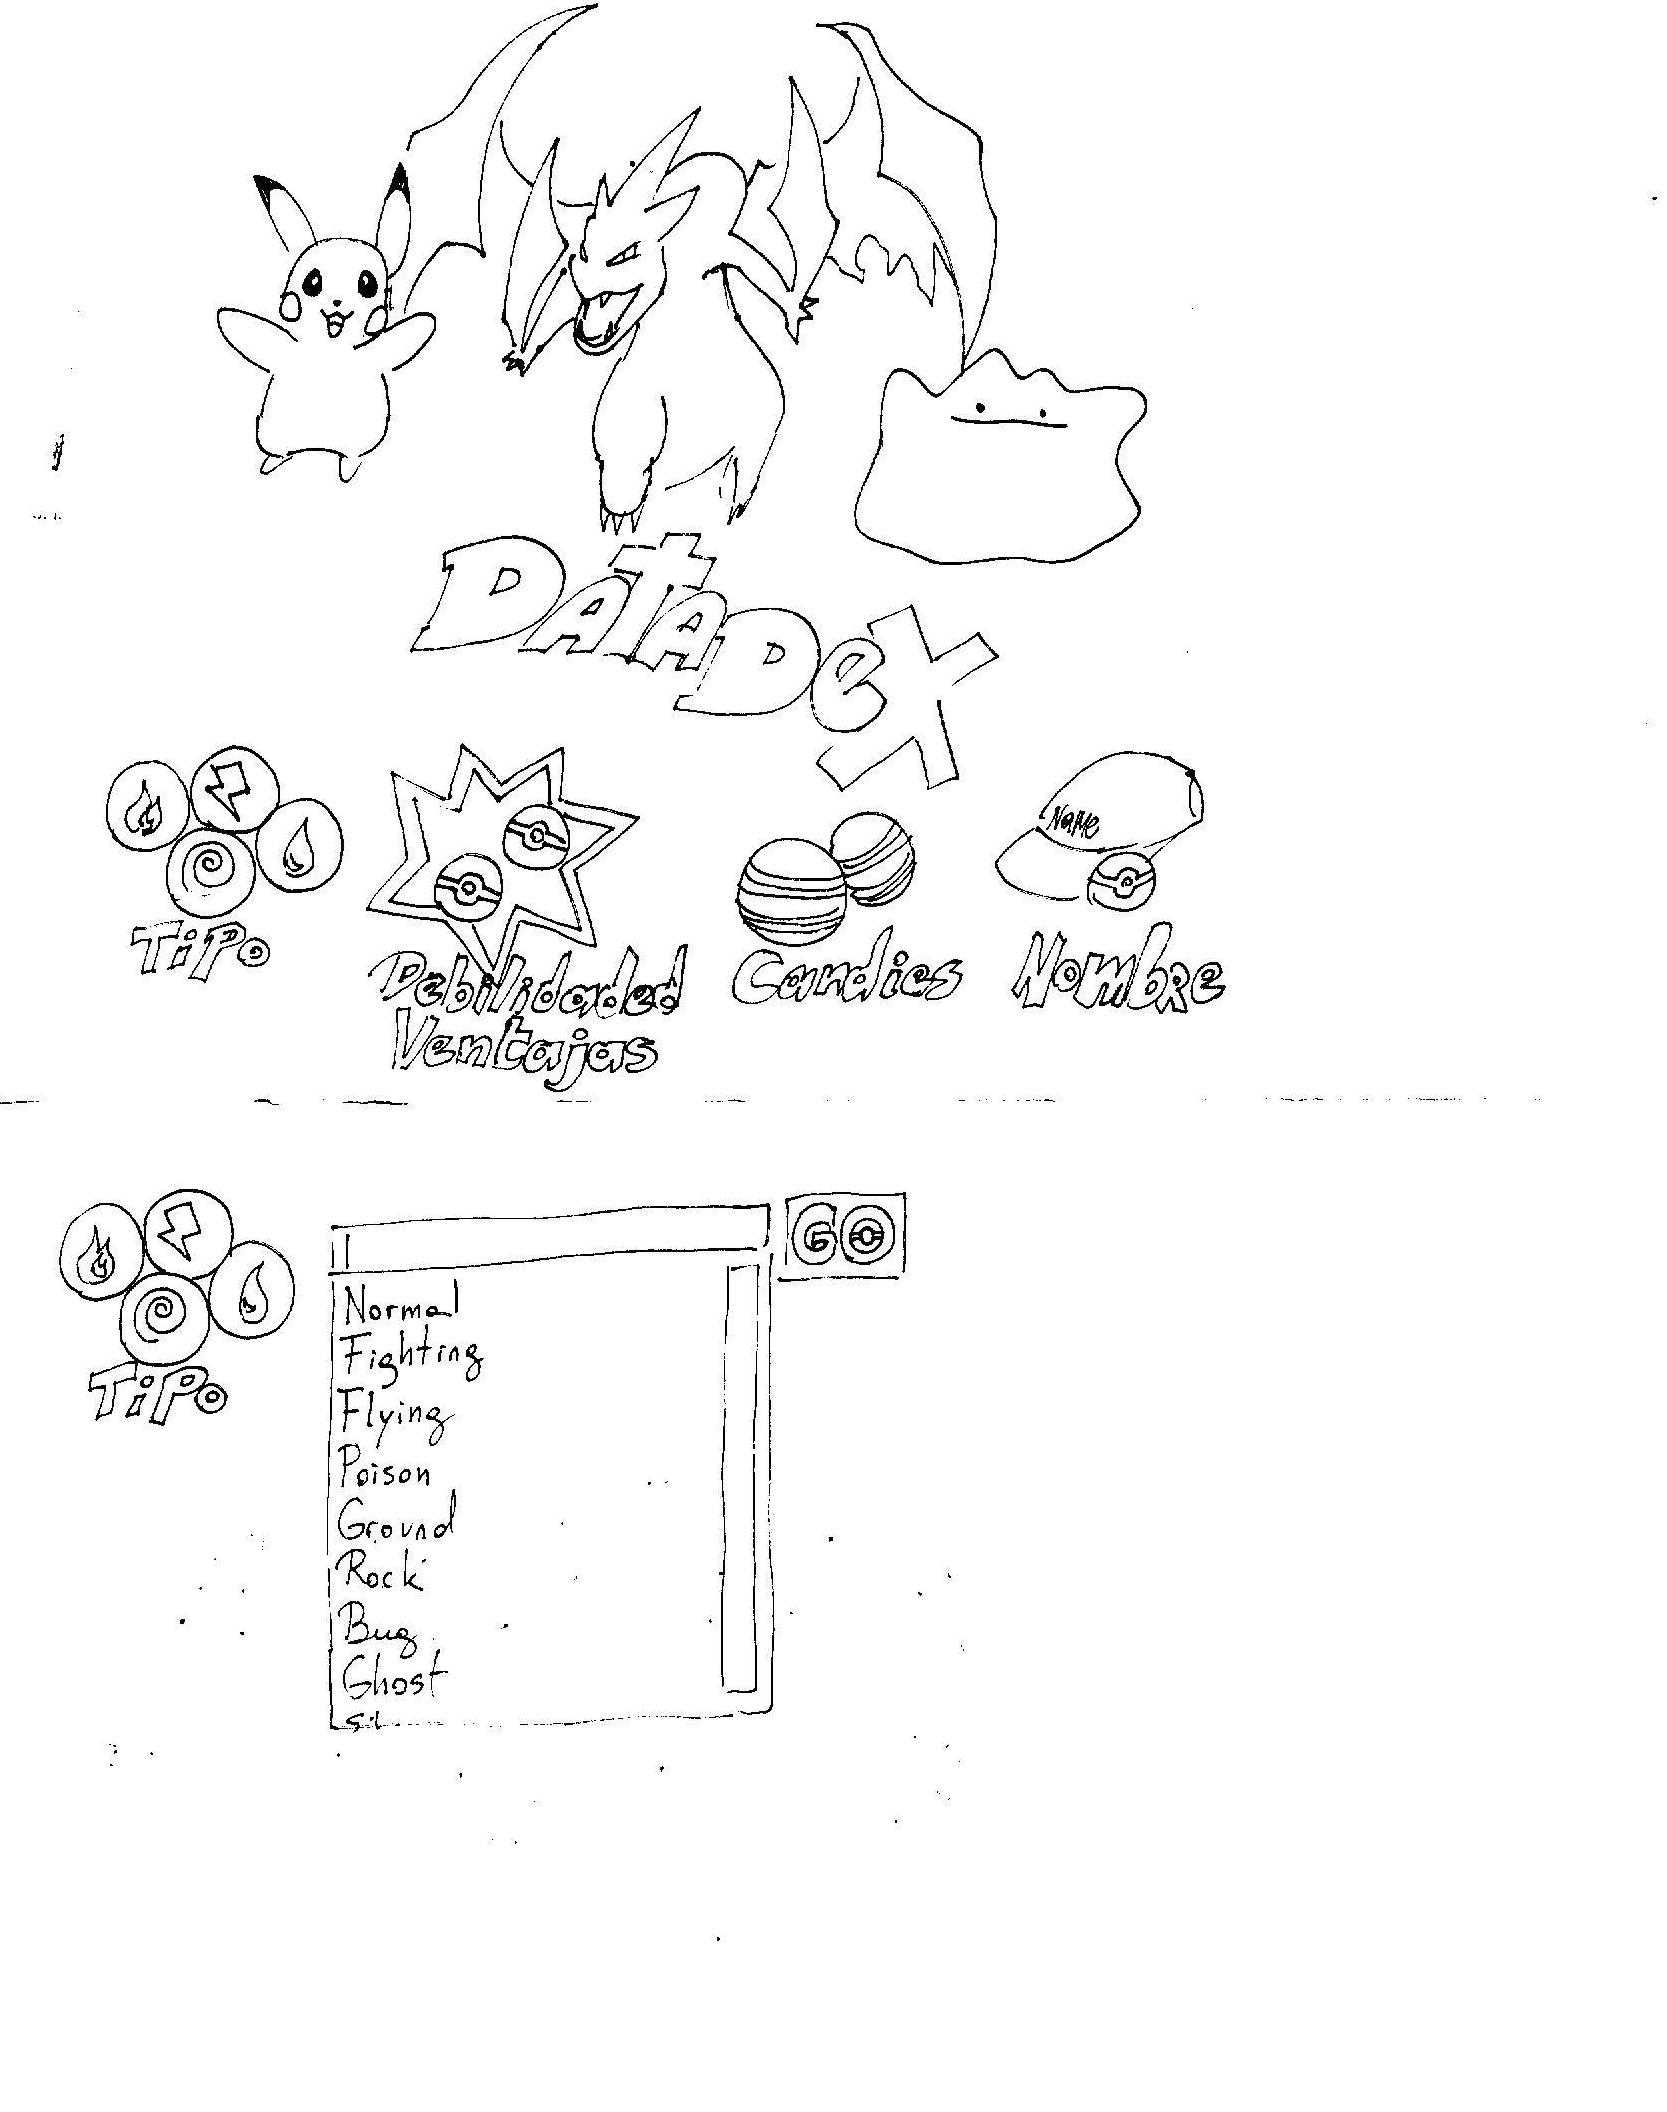 DATADex
NaMe
TiPo
Debilidaded
Ventajas
Candies
NombRe
GO
TiPo
Normal
Fighting
Flying
Poison
Ground
Rock
Bug
Ghost